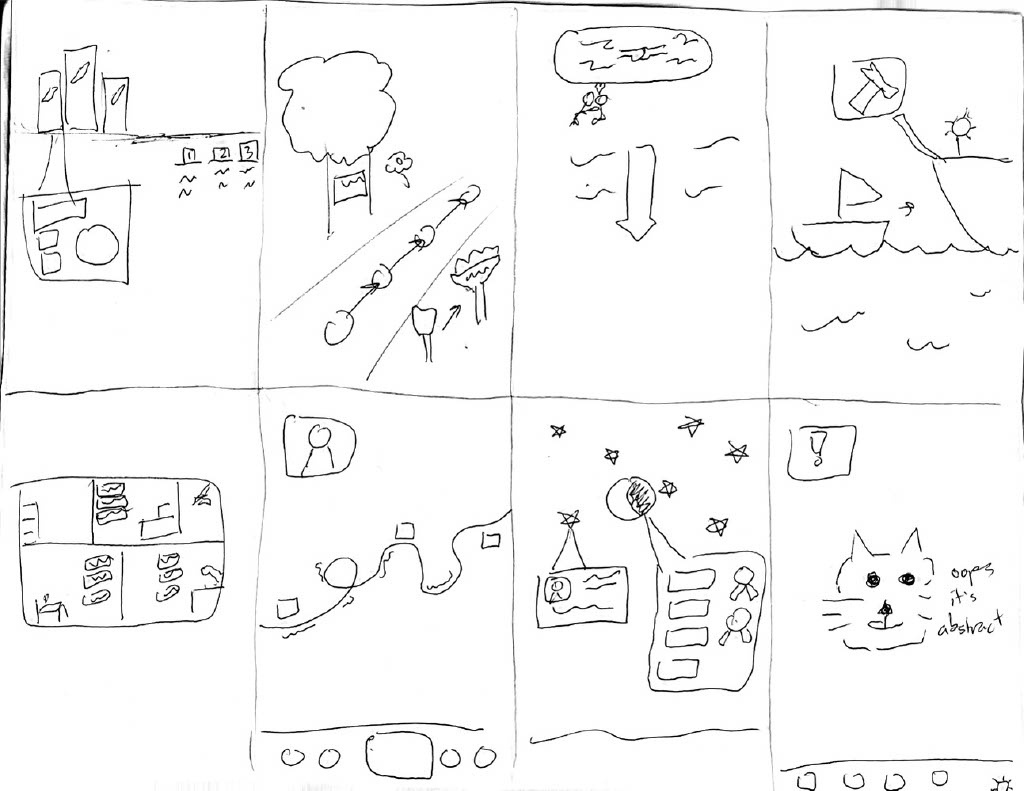 1 2 3
!
oops
it's
abstract